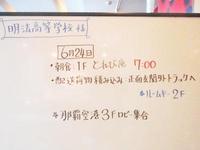 明法高等学校 様
6月24日
・朝食:1F 7:00
・配送荷物積み込み:正面玄関外トラックへ
ルームキー2F
⇒那覇空港3Fロビー集合